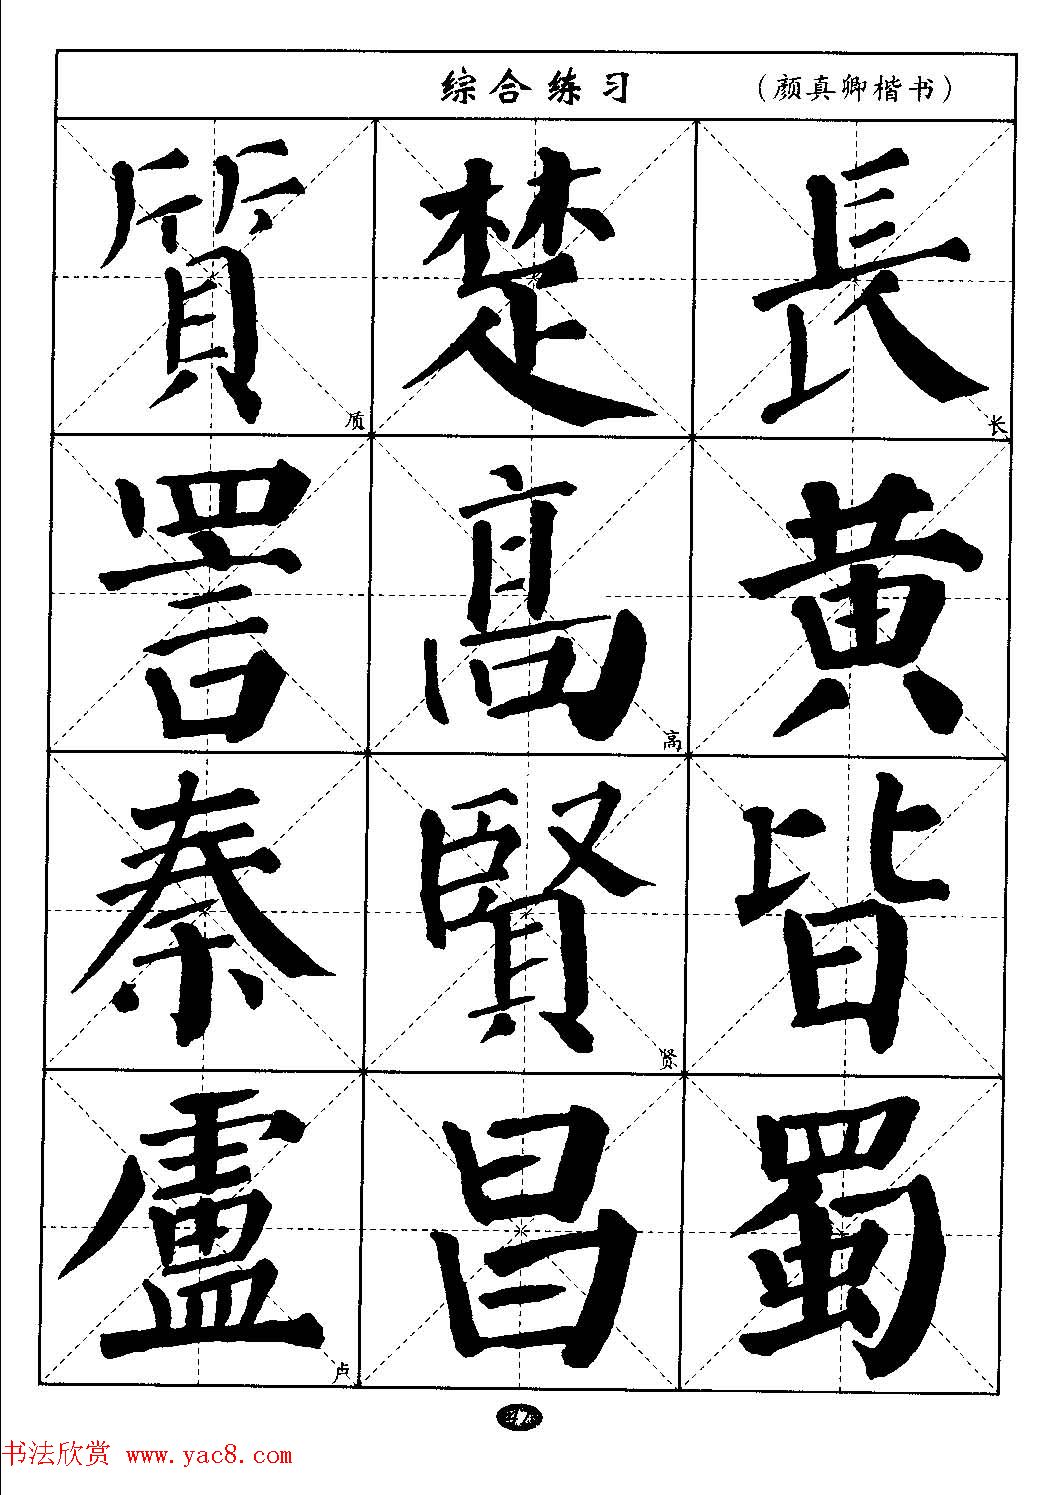 综合练习 （颜真卿楷书）
質 质 楚 長 长
詈 髙 高 黄
秦 賢 贤 皆
盧 卢 昌 蜀
书法欣赏 www.yac8.com